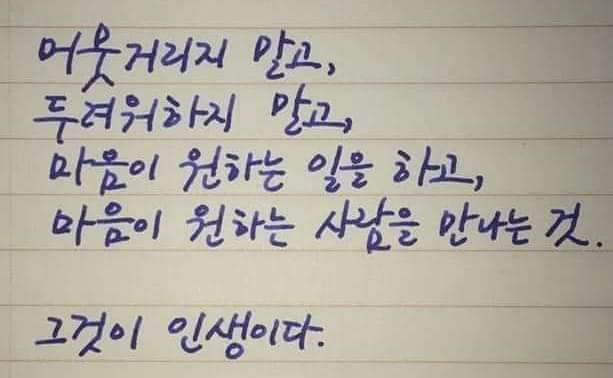 머뭇거리지 말고,
두려워하지 말고,
마음이 원하는 일을 하고,
마음이 원하는 사람을 만나는 것.
그것이 인생이다.